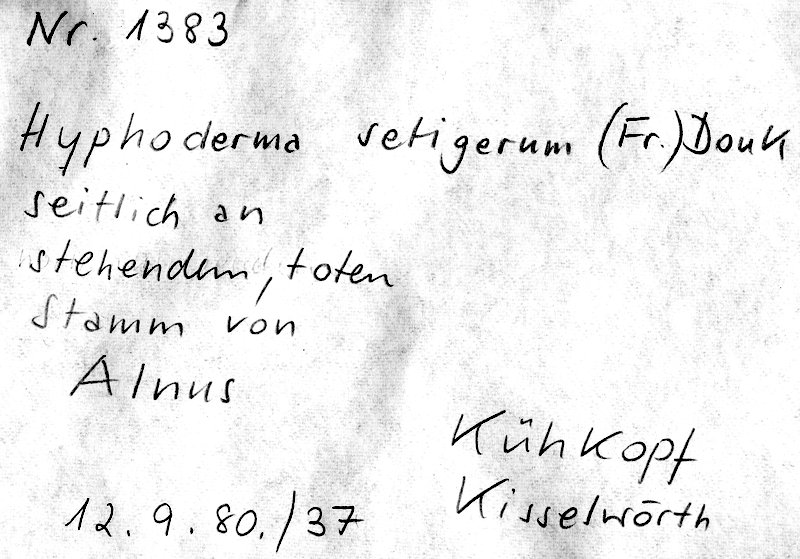 Nr. 1383
Hyphoderma setigerum (Fr.) Donk
seitlich an
stehendem, toten
Stamm von
Alnus
Kühkopf
Kisselwörth
12. 9. 80. / 37